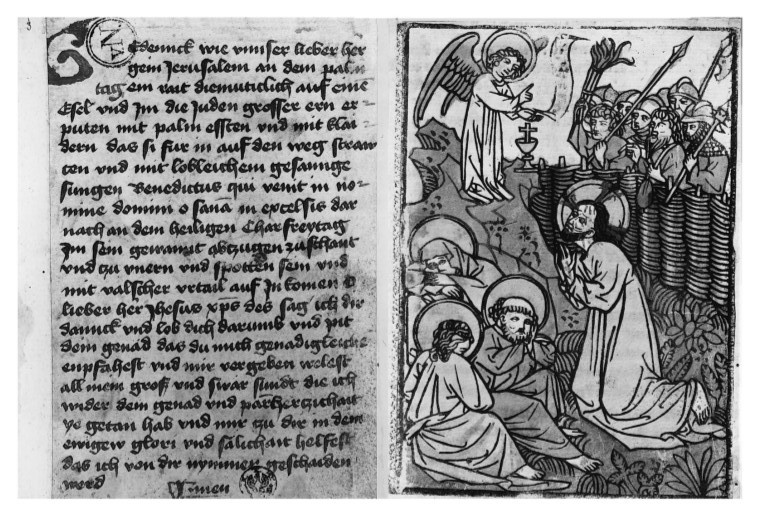 NA
Gedennck wie vnnser lieber her
gein Jerusalem an dem palm
tag ein rait diemuticlich auf eine
Esel vnd Im die Juden grosser ern er-
puten mit palm essten vnd mit klai-
dern das si fur in auf den weg straw
ten vnd mit lobleichem gesannge
sungen Benedictus qui venit in no-
mine domini o sana in excelsis dar
nach an dem heiligen Charfreytag
Im sein gewannt abzugen zu schant
vnd zu vnern vnd spotten sein vnd
mit valscher vrtail auf In komen O
lieber her Jhesus xps des sag ich dir
dannck vnd lob dich darumb vnd pit
dein genad das du mich genadigleiche
enpfahest vnd mir vergeben welest
all mein groß vnd swar sundt die ich
wider dein genad vnd parhertzichait
ye getan hab vnd mir zu dir in dein
ewigew glori vnd sälichait helfest
das ich von dir nymmer geschaiden
werd Amen